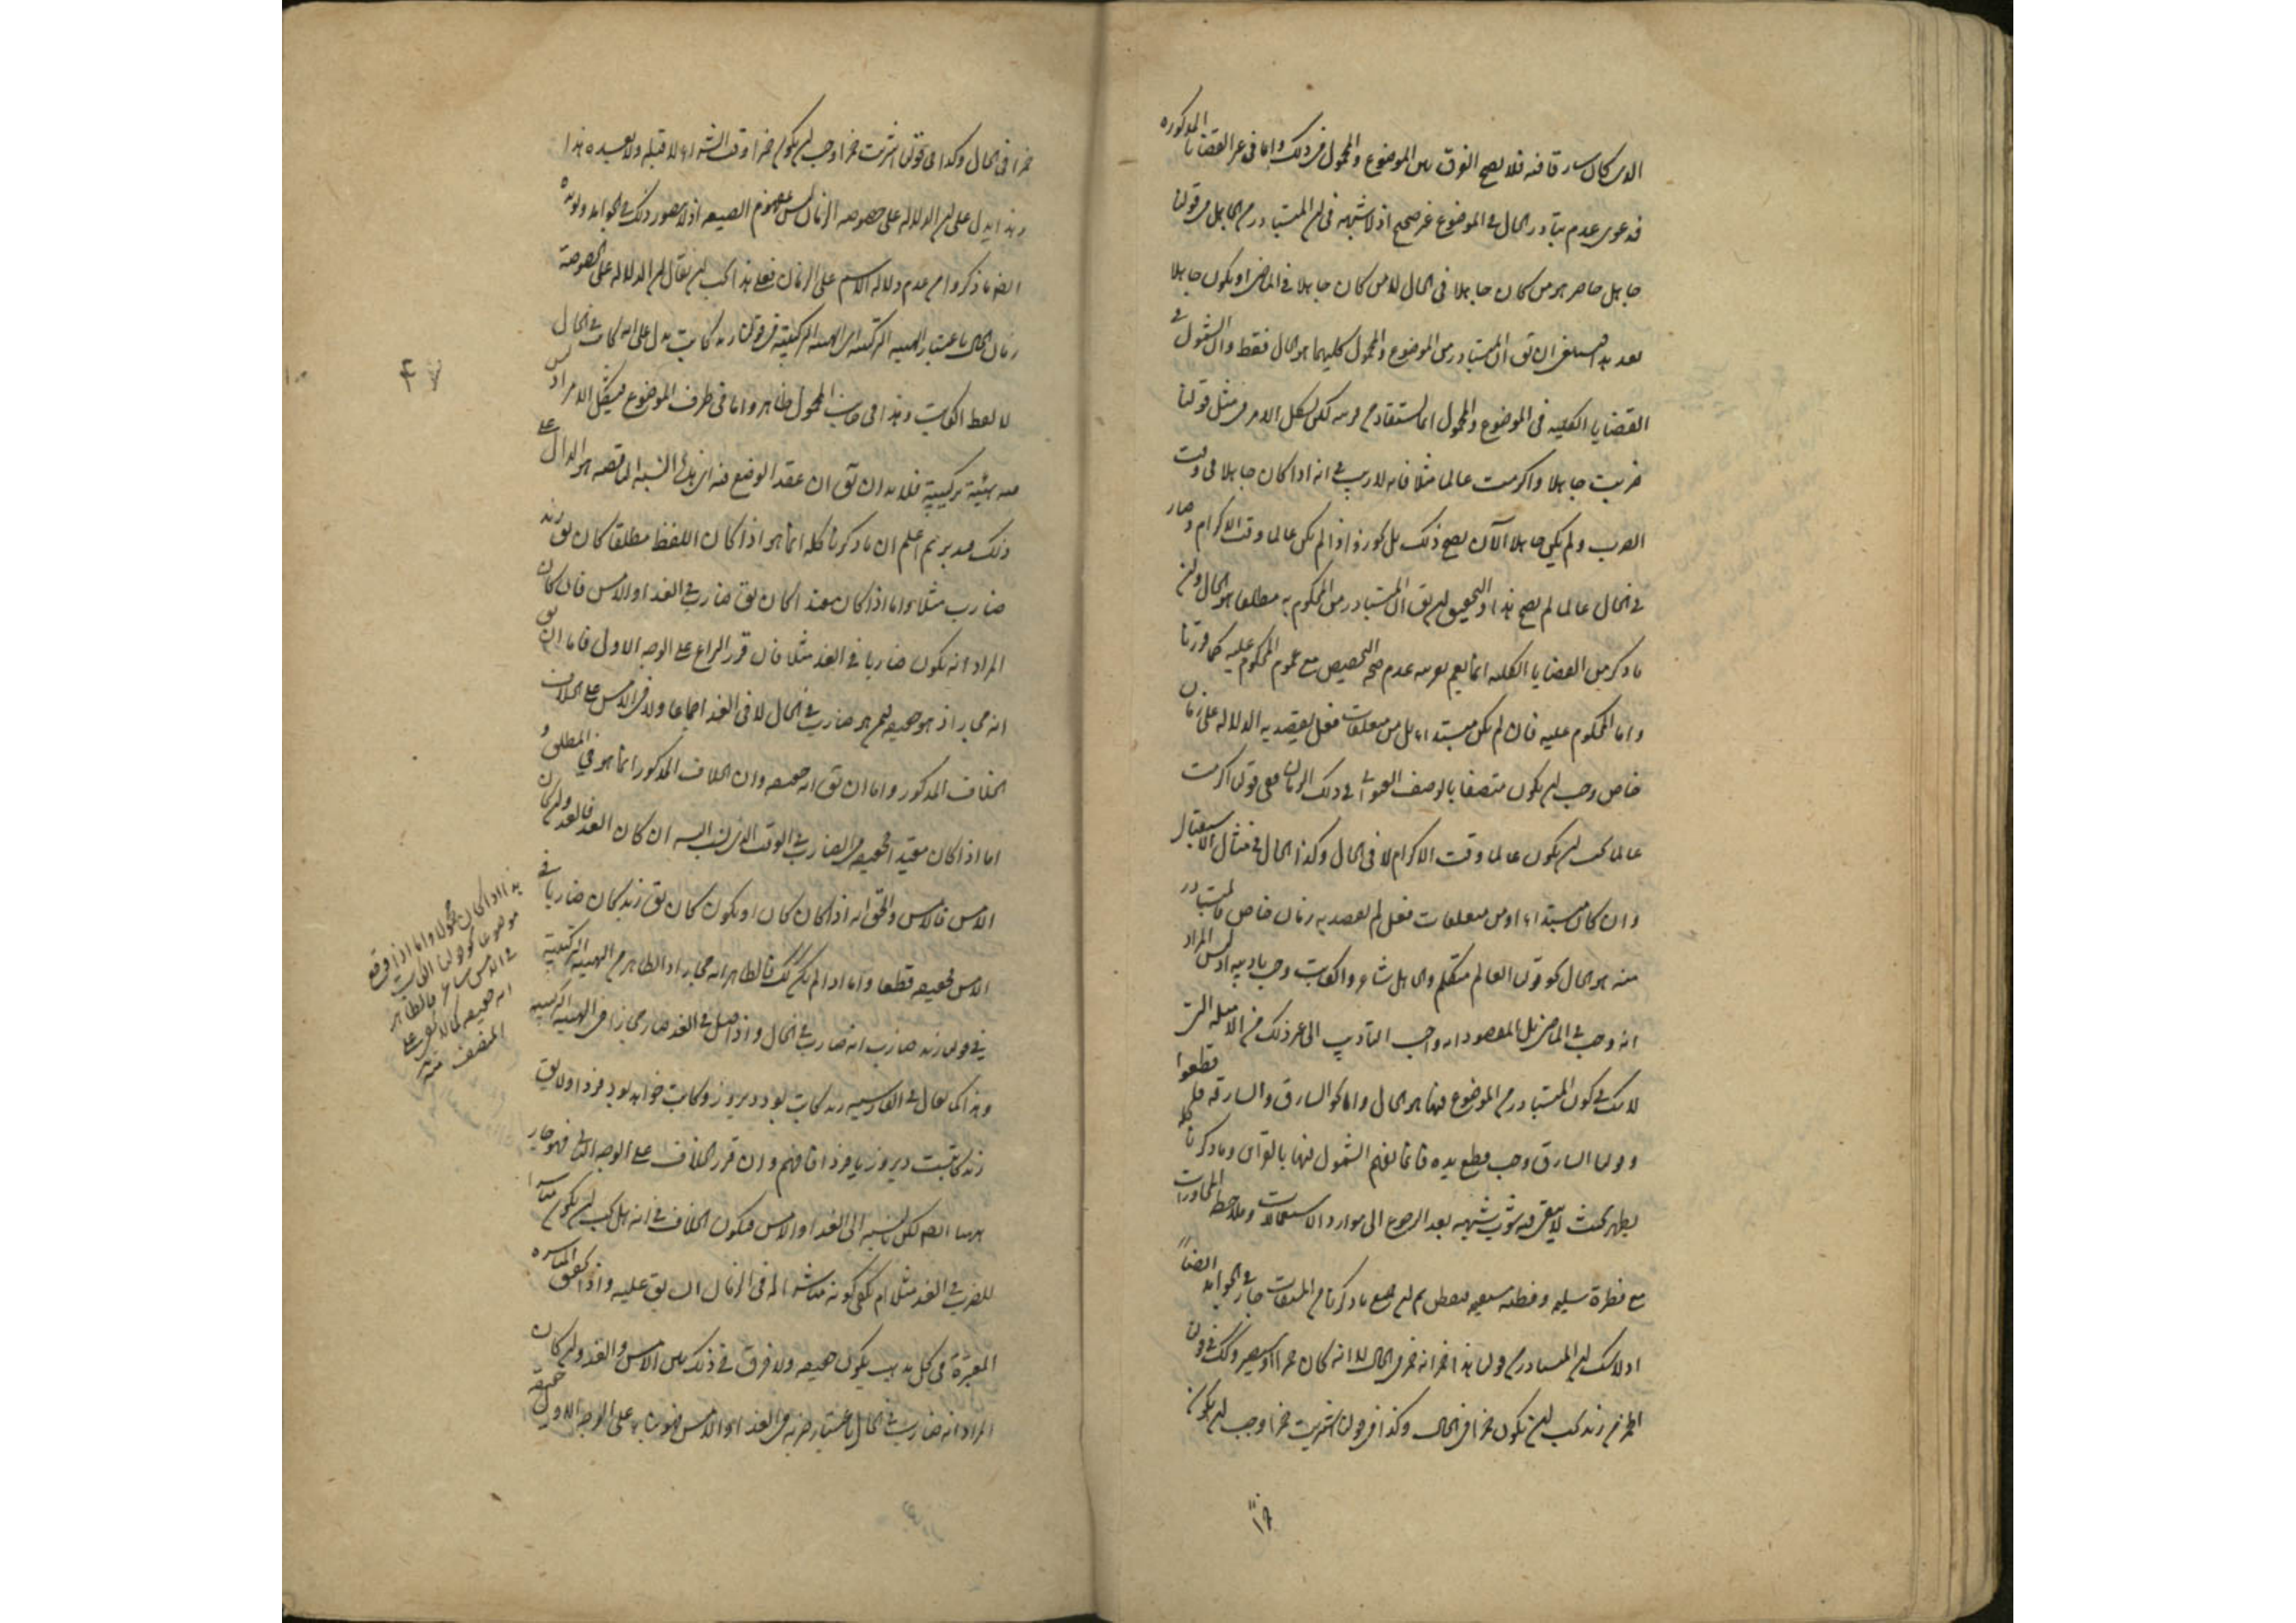 الذى كان سارقا فيه فلا يصح الفرق بين الموضوع والمحمول فى ذلك واما فى غير القضايا المذكوره
فدعوى عدم تبادر الحال فى الموضوع غير صحيح اذ لا شبهه فى ان المتبادر من الجاهل فى قولنا
جاهل حاضر هو من كان جاهلا فى الحال لا من كان جاهلا فى الماضى او يكون جاهلا
بعد هذا فينبغى ان يق ان المتبادر من الموضوع والمحمول كليهما هو الحال فقط والشمول فى
القضايا الكليه فى الموضوع والمحمول انما يستفاد من قرينه لكن يشكل الامر فى مثل قولنا
ضربت جاهلا واكرمت عالما مثلا فانه لا ريب فى انه اذا كان جاهلا فى وقت
الضرب ولم يكن جاهلا الآن يصح ذلك بل اذا لم يكن عالما وقت الاكرام وصار
فى الحال عالما لم يصح هذا والتحقيق ان يق ان المتبادر من المحكوم به مطلقا هو الحال وان
ما ذكر من القضايا الكليه انما يعم بقرينه عدم صحة التخصيص مع عموم المحكوم عليه كما قررنا
واما المحكوم عليه فان لم يكن مبتداء بل من متعلقات فعل يقصد به الدلاله على زمان
خاص وجب ان يكون متصفا بالوصف العنوانى فى ذلك الزمان ففى قولنا اكرمت
عالما يجب ان يكون عالما وقت الاكرام لا فى الحال وكذا الحال فى مثال الاستقبال
وان كان مبتداء او من متعلقات فعل لم يقصد به زمان خاص فالمتبادر
منه هو الحال كقولنا العالم متكلم والجاهل شاعر والكاتب وجب تاديبه اذ ليس المراد
انه وجب فى الماضى بل المقصود انه واجب التاديب الى غير ذلك من الامثله التى
لا شك فى كون المتبادر من الموضوع فيها هو الحال واما نحو السارق والسارقه فاقطعوا
وقولنا السارق وجب قطع يده فانما يفهم الشمول فيها بالقراين وما ذكرنا كله
يظهر بحيث لا يبقى فيه شوب شبهه بعد الرجوع الى موارد الاستعمالات وملاحظه المحاورات
مع فطرة سليمه وفطنه مستقيمه ثم ان جميع ما ذكرنا من المشتقات جار فى الجوامد ايضا
اذ لا شك ان المتبادر من قولنا هذا خمر انه خمر فى الحال لا انه كان خمرا او سيصير وكذا فى قولنا
الخمر زيد يجب ان يكون خمرا فى الحال وكذا فى قولنا اشتريت خمرا وجب ان يكون
١٩
خمرا فى الحال وكذا فى قولنا اشتريت خمرا وجب ان يكون خمرا وقت الشراء لا قبله ولا بعده هذا
وهذا يدل على ان الدلاله على خصوصه الزمان ليس مفهوم الصيغه اذ لا يتصور ذلك فى الجوامد ويؤيده
ايضا ما ذكروا من عدم دلاله الاسم على الزمان فعلى هذا يجب ان يقال ان الدلاله على خصوصه
زمان الحال باعتبار الهيئه التركيبيه فى قولنا زيد كاتب يدل على انه كاتب فى الحال
لا لفظ الكاتب وهذا فى جانب المحمول ظاهر واما فى طرف الموضوع فيشكل الامر اذ ليس
فيه هيئة تركيبية فلا بد ان يق ان عقد الوضع فيه اى هذه النسبه الناقصه هو الدال على
ذلك فتدبر ثم اعلم ان ما ذكرنا كله انما هو اذا كان اللفظ مطلقا كان يق زيد
ضارب مثلا واما اذا كان مقيدا كان يق ضارب فى الغد او الامس فان كان
المراد انه يكون ضاربا فى الغد مثلا فان قرر النزاع على الوجه الاول فاما ان يق
انه مجاز اذ هو حقيقه فيمن هو ضارب فى الحال لا فى الغد اجماعا ولا فى الامس على الخلاف
الخلاف المذكور واما ان يق انه حقيقه وان الخلاف المذكور انما هو فى المطلق و
اما اذا كان مقيدا فحقيقه فى الضارب فى الوقت الذى نسب اليه ان كان الغد فالغد وان كان
الامس فالامس والحق انه اذا كان كان او يكون كان يق زيد كان ضاربا فى
الامس فحقيقه قطعا واما اذا لم يكن كك فالظاهر انه مجاز اذ الظاهر من الهيئه التركيبية
فى قولنا زيد ضارب انه ضارب فى الحال واذا قيل فى الغد صار مجازا فى الهيئه التركيبيه
وهذا كما يقال فى الفارسيه زيد كاتب بود ديروز وكاتب خواهد بود فردا ولا يق
زيد كاتبست ديروز يا فردا فافهم وان قرر الخلاف على الوجه الثانى فهو جار
ههنا ايضا لكن بالنسبه الى الغد او الامس فيكون الخلاف فى انه هل يجب ان يكون مباشرا
للضرب فى الغد مثلا ام يكفى كونه مباشرا له فى الزمان السابق عليه واذا تحقق المباشره
المعتبرة فى كل مذهب يكون حقيقه ولا فرق فى ذلك بين الامس والغد وان كان
المراد انه ضارب فى الحال باعتبار ضربه فى الغد او الامس فهو بناء على الوجه الاول حقيقه
٤٧
هذا اذا كان محمولا واما اذا وقع
موضوعا كقولنا الكاتب
فى الامس شاعر فالظاهر
انه حقيقه كما لا يخفى على
المنصف منه